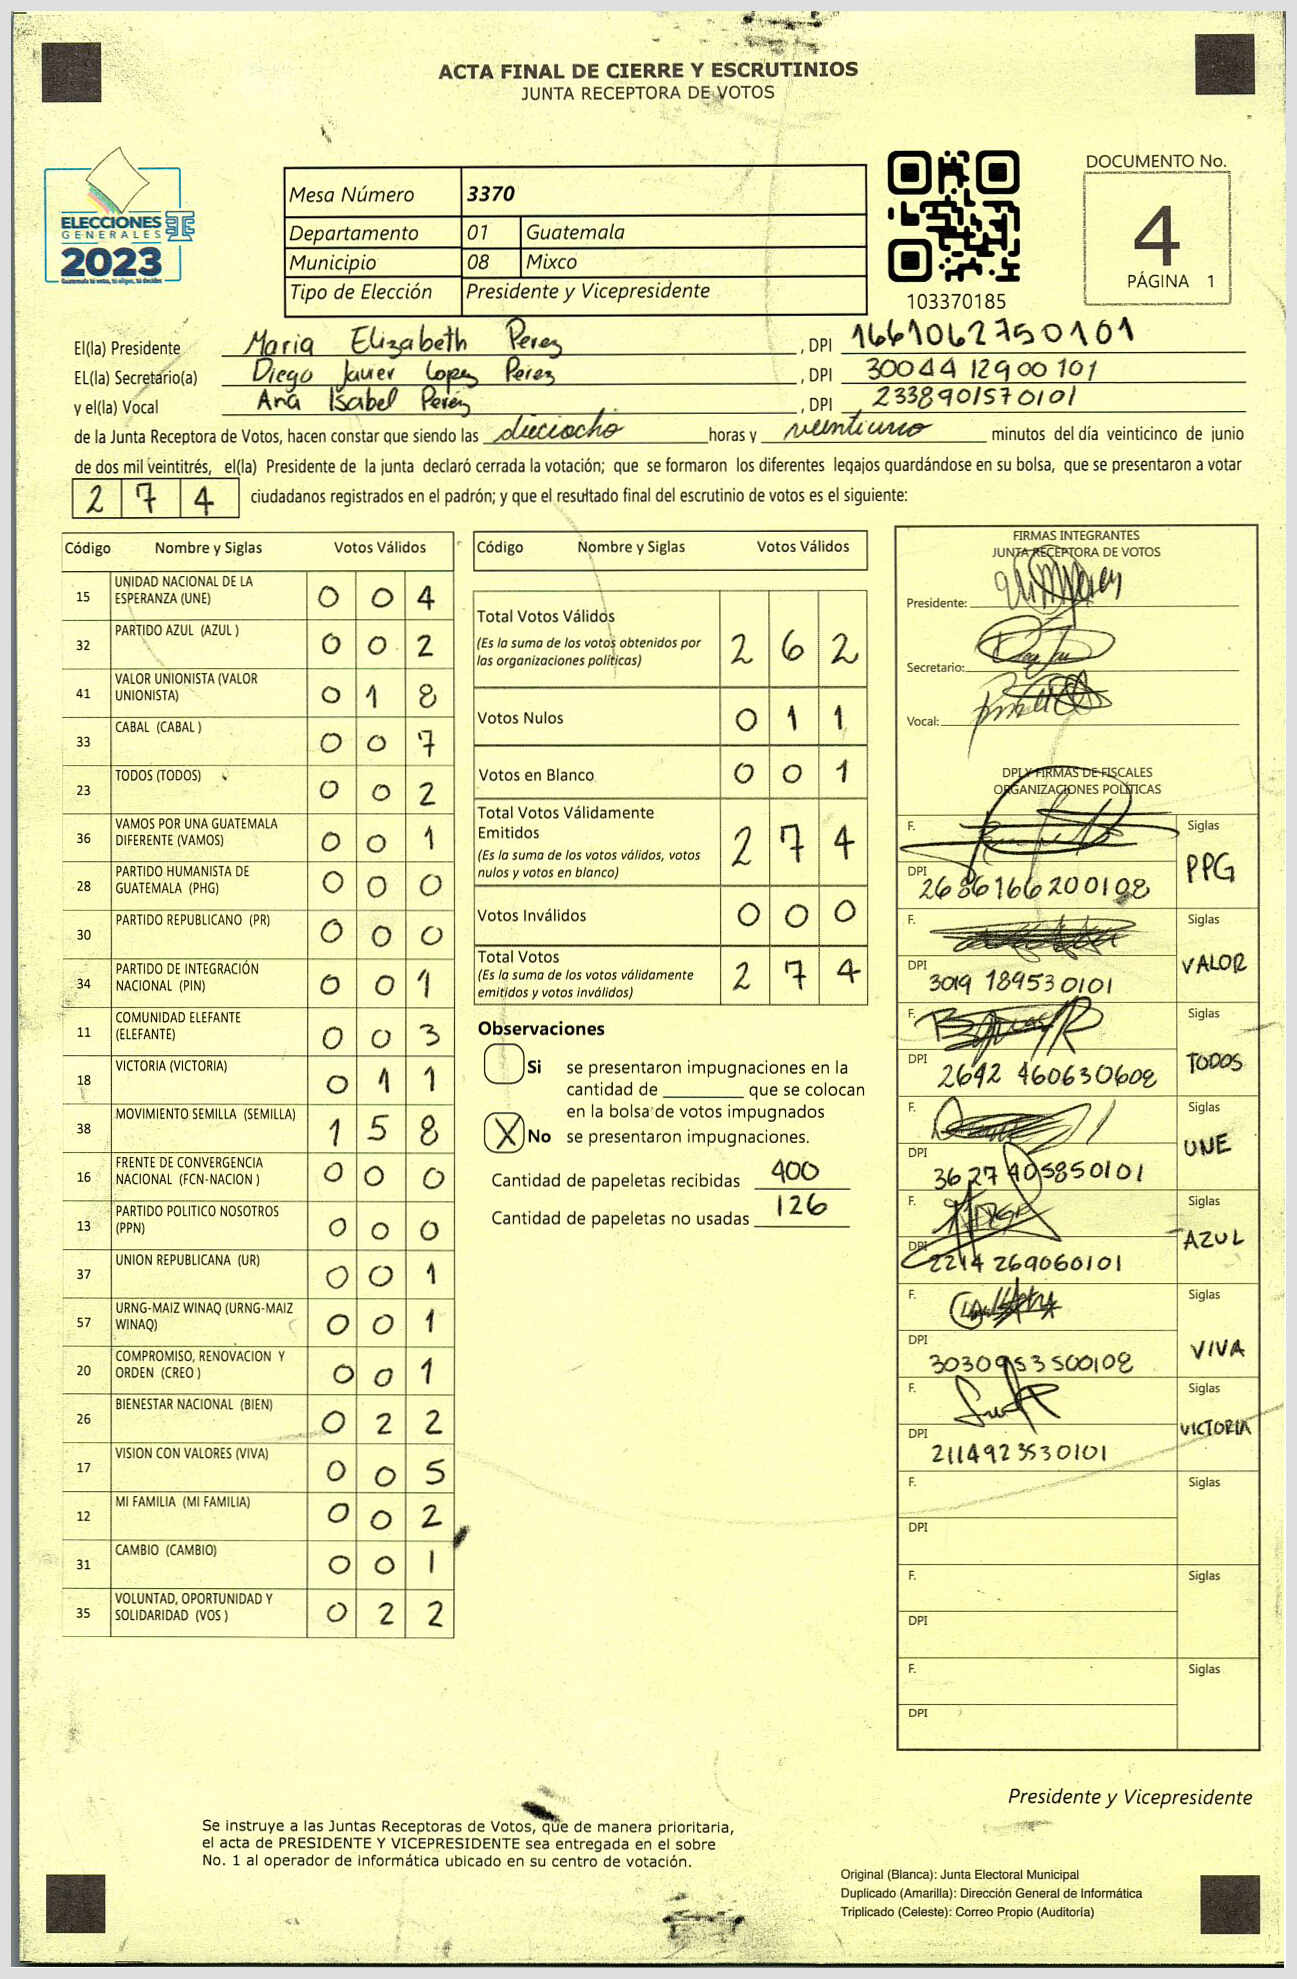 ACTA FINAL DE CIERRE Y ESCRUTINIOS
JUNTA RECEPTORA DE VOTOS
ELECCIONES
GENERALES
2023
Guatemala te vota, tú eliges, tú decides
Mesa Número 3370
Departamento 01 Guatemala
Municipio 08 Mixco
Tipo de Elección Presidente y Vicepresidente
103370185
DOCUMENTO No.
4
PÁGINA 1
El(la) Presidente Maria Elizabeth Perez , DPI 1661062750101
EL(la) Secretario(a) Diego Javier Lopez Perez , DPI 3004412900101
y el(la) Vocal Ana Isabel Peréz , DPI 2338901570101
de la Junta Receptora de Votos, hacen constar que siendo las dieciocho horas y veintiuno minutos del día veinticinco de junio
de dos mil veintitrés, el(la) Presidente de la junta declaró cerrada la votación; que se formaron los diferentes legajos guardándose en su bolsa, que se presentaron a votar
2 7 4 ciudadanos registrados en el padrón; y que el resultado final del escrutinio de votos es el siguiente:
Código Nombre y Siglas Votos Válidos
15 UNIDAD NACIONAL DE LA ESPERANZA (UNE) 0 0 4
32 PARTIDO AZUL (AZUL ) 0 0 2
41 VALOR UNIONISTA (VALOR UNIONISTA) 0 1 8
33 CABAL (CABAL ) 0 0 7
23 TODOS (TODOS) 0 0 2
36 VAMOS POR UNA GUATEMALA DIFERENTE (VAMOS) 0 0 1
28 PARTIDO HUMANISTA DE GUATEMALA (PHG) 0 0 0
30 PARTIDO REPUBLICANO (PR) 0 0 0
34 PARTIDO DE INTEGRACIÓN NACIONAL (PIN) 0 0 1
11 COMUNIDAD ELEFANTE (ELEFANTE) 0 0 3
18 VICTORIA (VICTORIA) 0 1 1
38 MOVIMIENTO SEMILLA (SEMILLA) 1 5 8
16 FRENTE DE CONVERGENCIA NACIONAL (FCN-NACION ) 0 0 0
13 PARTIDO POLITICO NOSOTROS (PPN) 0 0 0
37 UNION REPUBLICANA (UR) 0 0 1
57 URNG-MAIZ WINAQ (URNG-MAIZ WINAQ) 0 0 1
20 COMPROMISO, RENOVACION Y ORDEN (CREO ) 0 0 1
26 BIENESTAR NACIONAL (BIEN) 0 2 2
17 VISION CON VALORES (VIVA) 0 0 5
12 MI FAMILIA (MI FAMILIA) 0 0 2
31 CAMBIO (CAMBIO) 0 0 1
35 VOLUNTAD, OPORTUNIDAD Y SOLIDARIDAD (VOS ) 0 2 2
Código Nombre y Siglas Votos Válidos
Total Votos Válidos 2 6 2
(Es la suma de los votos obtenidos por
las organizaciones políticas)
Votos Nulos 0 1 1
Votos en Blanco 0 0 1
Total Votos Válidamente
Emitidos 2 7 4
(Es la suma de los votos válidos, votos
nulos y votos en blanco)
Votos Inválidos 0 0 0
Total Votos 2 7 4
(Es la suma de los votos válidamente
emitidos y votos inválidos)
Observaciones
Si se presentaron impugnaciones en la
cantidad de ________ que se colocan
en la bolsa de votos impugnados
X No se presentaron impugnaciones.
Cantidad de papeletas recibidas 400
Cantidad de papeletas no usadas 126
FIRMAS INTEGRANTES
JUNTA RECEPTORA DE VOTOS
Presidente:
Secretario:
Vocal:
DPI Y FIRMAS DE FISCALES
ORGANIZACIONES POLÍTICAS
F. Siglas
DPI 2686166200108 PPG
F. Siglas
DPI 3019 189530101 VALOR
F. Siglas
DPI 2642 460630608 TODOS
F. Siglas
DPI 3627405850101 UNE
F. Siglas
DPI 2214 269060101 AZUL
F. Siglas
DPI 3030953500108 VIVA
F. Siglas
DPI 2114923530101 VICTORIA
F. Siglas
DPI
F. Siglas
DPI
F. Siglas
DPI
Presidente y Vicepresidente
Se instruye a las Juntas Receptoras de Votos, que de manera prioritaria,
el acta de PRESIDENTE Y VICEPRESIDENTE sea entregada en el sobre
No. 1 al operador de informática ubicado en su centro de votación.
Original (Blanca): Junta Electoral Municipal
Duplicado (Amarilla): Dirección General de Informática
Triplicado (Celeste): Correo Propio (Auditoría)